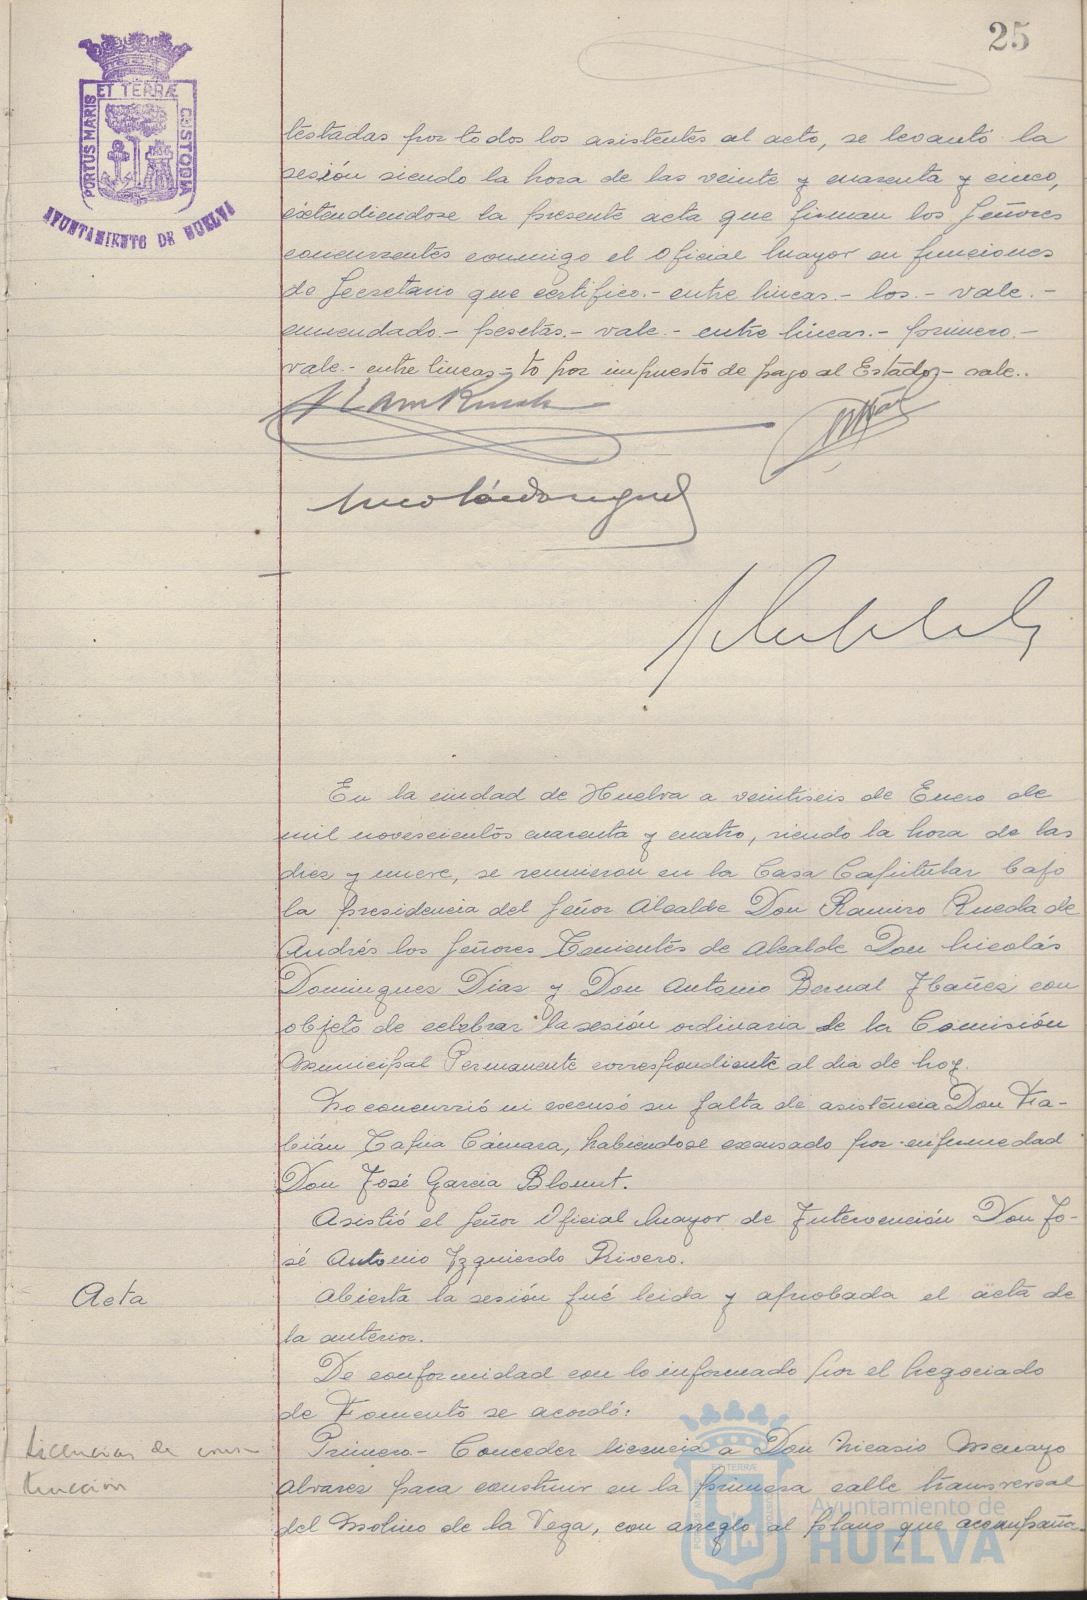 25
ET TERRÆ
PORTUS MARIS
CUSTODIA
AYUNTAMIENTO DE HUELVA
testadas por todos los asistentes al acto, se levantó la
sesión siendo la hora de las veinte y cuarenta y cinco,
extendiendose la presente acta que firman los Señores
concurrentes conmigo el Oficial Mayor en funciones
de Secretario que certifico.- entre lineas.- los.- vale.-
enmendado.- pesetas.- vale.- entre lineas.- primero.-
vale.- entre lineas- to por impuesto de pago al Estado,- vale..
En la ciudad de Huelva a veintiseis de Enero de
mil novescientos cuarenta y cuatro, siendo la hora de las
diez y nueve, se reunieron en la Casa Capitular bajo
la presidencia del Señor Alcalde Don Ramiro Rueda de
Andrés los Señores Tenientes de Alcalde Don Nicolás
Dominguez Diaz y Don Antonio Bernal Ibañez con
objeto de celebrar la sesión ordinaria de la Comisión
Municipal Permanente correspondiente al dia de hoy.
No concurrió ni escusó su falta de asistencia Don Fa-
bián Tapia Cámara, habiendose excusado por enfermedad
Don José Garcia Blount.
Asistió el Señor Oficial Mayor de Intervención Don Jo-
sé Antonio Izquierdo Rivero.
Acta
Abierta la sesión fué leida y aprobada el acta de
la anterior.
De conformidad con lo informado por el Negociado
de Fomento se acordó:
Licencias de cons-
trucción
Primero.- Conceder licencia a Don Nicasio Menayo
Alvarez para construir en la primera calle transversal
del Molino de la Vega, con arreglo al plano que acompaña-
Ayuntamiento de
HUELVA